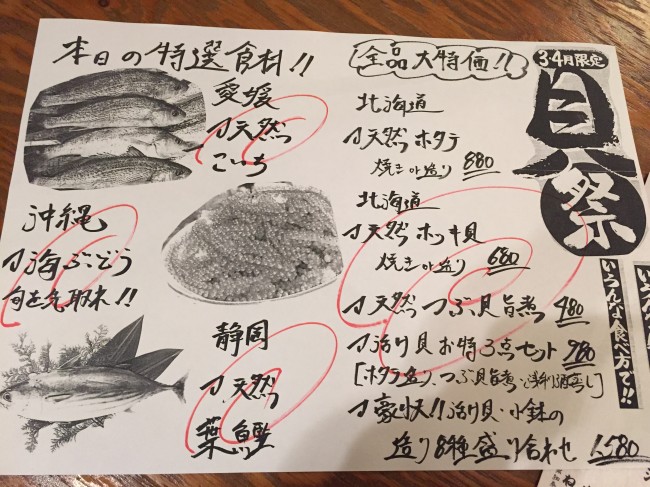 本日の特選食料!!
愛媛
天然
こいち
沖縄
海ぶどう
旬を先取り!!
静岡
天然
葉鰹
全品大特価!!
3・4月限定
貝祭
いろんな食べ方で!!
北海道
天然ホタテ
焼きor造り 880
北海道
天然ホッキ貝
焼きor造り 680
天然つぶ貝旨煮 480
活〆貝お特3点セット 980
[ホタテ造り、つぶ貝旨煮、浅利酒蒸し]
豪快!!活〆貝・小鉢の
造り8種盛り合わせ 1,580